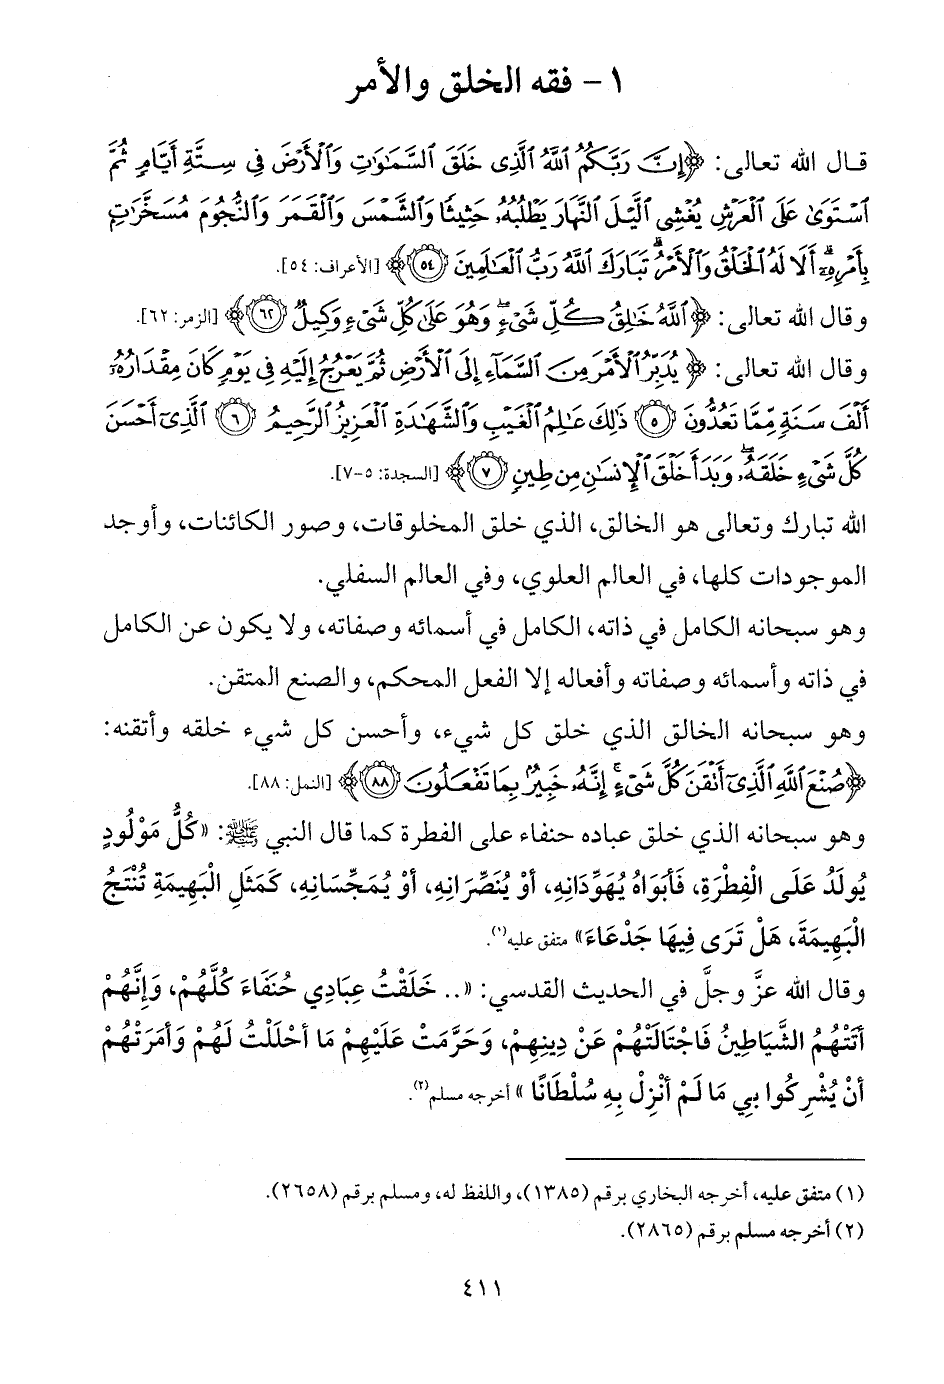 ١- فقه الخلق والأمر
قال الله تعالى: ﴿إِنَّ رَبَّكُمُ ٱللَّهُ ٱلَّذِى خَلَقَ ٱلسَّمَٰوَٰتِ وَٱلْأَرْضَ فِى سِتَّةِ أَيَّامٍ ثُمَّ
ٱسْتَوَىٰ عَلَى ٱلْعَرْشِ يُغْشِى ٱلَّيْلَ ٱلنَّهَارَ يَطْلُبُهُۥ حَثِيثًا وَٱلشَّمْسَ وَٱلْقَمَرَ وَٱلنُّجُومَ مُسَخَّرَٰتٍۭ
بِأَمْرِهِۦٓ ۗ أَلَا لَهُ ٱلْخَلْقُ وَٱلْأَمْرُ ۗ تَبَارَكَ ٱللَّهُ رَبُّ ٱلْعَٰلَمِينَ ٥٤﴾ [الأعراف: ٥٤].
وقال الله تعالى: ﴿ٱللَّهُ خَٰلِقُ كُلِّ شَىْءٍ ۖ وَهُوَ عَلَىٰ كُلِّ شَىْءٍ وَكِيلٌ ٦٢﴾ [الزمر: ٦٢].
وقال الله تعالى: ﴿يُدَبِّرُ ٱلْأَمْرَ مِنَ ٱلسَّمَآءِ إِلَى ٱلْأَرْضِ ثُمَّ يَعْرُجُ إِلَيْهِ فِى يَوْمٍ كَانَ مِقْدَارُهُۥٓ
أَلْفَ سَنَةٍ مِّمَّا تَعُدُّونَ ٥ ذَٰلِكَ عَٰلِمُ ٱلْغَيْبِ وَٱلشَّهَٰدَةِ ٱلْعَزِيزُ ٱلرَّحِيمُ ٦ ٱلَّذِىٓ أَحْسَنَ
كُلَّ شَىْءٍ خَلَقَهُۥ ۖ وَبَدَأَ خَلْقَ ٱلْإِنسَٰنِ مِن طِينٍ ٧﴾ [السجدة: ٥-٧].
الله تبارك وتعالى هو الخالق، الذي خلق المخلوقات، وصور الكائنات، وأوجد
الموجودات كلها، في العالم العلوي، وفي العالم السفلي.
وهو سبحانه الكامل في ذاته، الكامل في أسمائه وصفاته، ولا يكون عن الكامل
في ذاته وأسمائه وصفاته وأفعاله إلا الفعل المحكم، والصنع المتقن.
وهو سبحانه الخالق الذي خلق كل شيء، وأحسن كل شيء خلقه وأتقنه:
﴿صُنْعَ ٱللَّهِ ٱلَّذِىٓ أَتْقَنَ كُلَّ شَىْءٍ ۚ إِنَّهُۥ خَبِيرٌۢ بِمَا تَفْعَلُونَ ٨٨﴾ [النمل: ٨٨].
وهو سبحانه الذي خلق عباده حنفاء على الفطرة كما قال النبي ﷺ: «كُلُّ مَوْلُودٍ
يُولَدُ عَلَى الْفِطْرَةِ، فَأَبَوَاهُ يُهَوِّدَانِهِ، أَوْ يُنَصِّرَانِهِ، أَوْ يُمَجِّسَانِهِ، كَمَثَلِ الْبَهِيمَةِ تُنْتَجُ
الْبَهِيمَةَ، هَلْ تَرَى فِيهَا جَدْعَاءَ» متفق عليه(١).
وقال الله عزَّ وجلَّ في الحديث القدسي: «.. خَلَقْتُ عِبَادِي حُنَفَاءَ كُلَّهُمْ، وَإِنَّهُمْ
أَتَتْهُمُ الشَّيَاطِينُ فَاجْتَالَتْهُمْ عَنْ دِينِهِمْ، وَحَرَّمَتْ عَلَيْهِمْ مَا أَحْلَلْتُ لَهُمْ وَأَمَرَتْهُمْ
أَنْ يُشْرِكُوا بِي مَا لَمْ أُنْزِلْ بِهِ سُلْطَانًا» أخرجه مسلم(٢).
(١) متفق عليه، أخرجه البخاري برقم (١٣٨٥)، واللفظ له، ومسلم برقم (٢٦٥٨).
(٢) أخرجه مسلم برقم (٢٨٦٥).
٤١١